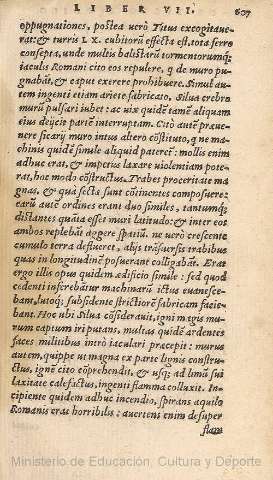 LIBER VII. 607
oppugnationes, postea uerò Titus excogitaue-
rat: & turris LX. cubitorũ effecta est, tota ferro
consepta, unde multis balistarũ tormentorumq;
iaculis Romani cito eos repulere, q de muro pu-
gnabãt, & caput exerere prohibuere. Simul au-
tem ingenti etiam ariete fabricato, Silua crebro
murũ pulsari iubet: ac uix quidẽ tamẽ aliquam
eius deijcit partẽ interruptam. Citò autẽ præue-
nere sicarij muro intus altero cõstituto, q ne ma-
chinis quidẽ simile aliquid pateret: mollis enim
adhuc erat, & impetus laxare uiolentiam pote-
rat, hoc modo cõstructus. Trabes proceritate ma
gnas, & quà sectæ sunt cõtinentes composuere:
earũ autẽ ordines erant duo similes, tantumq;
distantes quãta esset muri latitudo: & inter eos
ambos replebãt aggere spatiũ. ne uerò crescente
cumulo terra deflueret, alijs trãsuersis trabibus
quas in longitudinẽ posuerant colligabãt. Erat
ergo illis opus quidem ædificio simile: sed quod
cedenti inferebãtur machinarũ ictus euanesce-
bant, lutoq; subsidente strictiorẽ fabricam facie-
bant. Hoc ubi Silua cõsiderauit, igni magis mu-
rum captum iri putans, multas quidẽ ardentes
faces militibus intrò iaculari præcepit: murus
autem, quippe ut magna ex parte lignis constru-
ctus, ignẽ cito cõprehendit, & usq; ad imũ sui
laxitate calefactus, ingenti flamma colluxit. In-
cipiente quidem adhuc incendio, spirans aquilo
Romanis erat horribilis: auertens enim desuper
flam
Ministerio de Educación, Cultura y Deporte